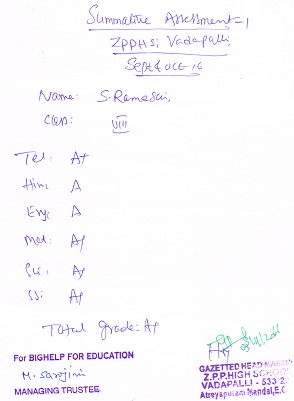 Summative Assessment 1
ZPPHS, Vadapalli
Sept & Oct-16
Name: S. Ramesai,
Class: VIII
Tel: A+
Hin: A
Eng: A
Mat: A+
Sci: A+
SS: A+
Total grade: A+
For BIGHELP FOR EDUCATION
M. Sarojini
MANAGING TRUSTEE
GAZETTED HEAD MASTER
Z.P.P.HIGH SCHOOL
VADAPALLI - 533 2
Atreyapuram Mandal, E.G